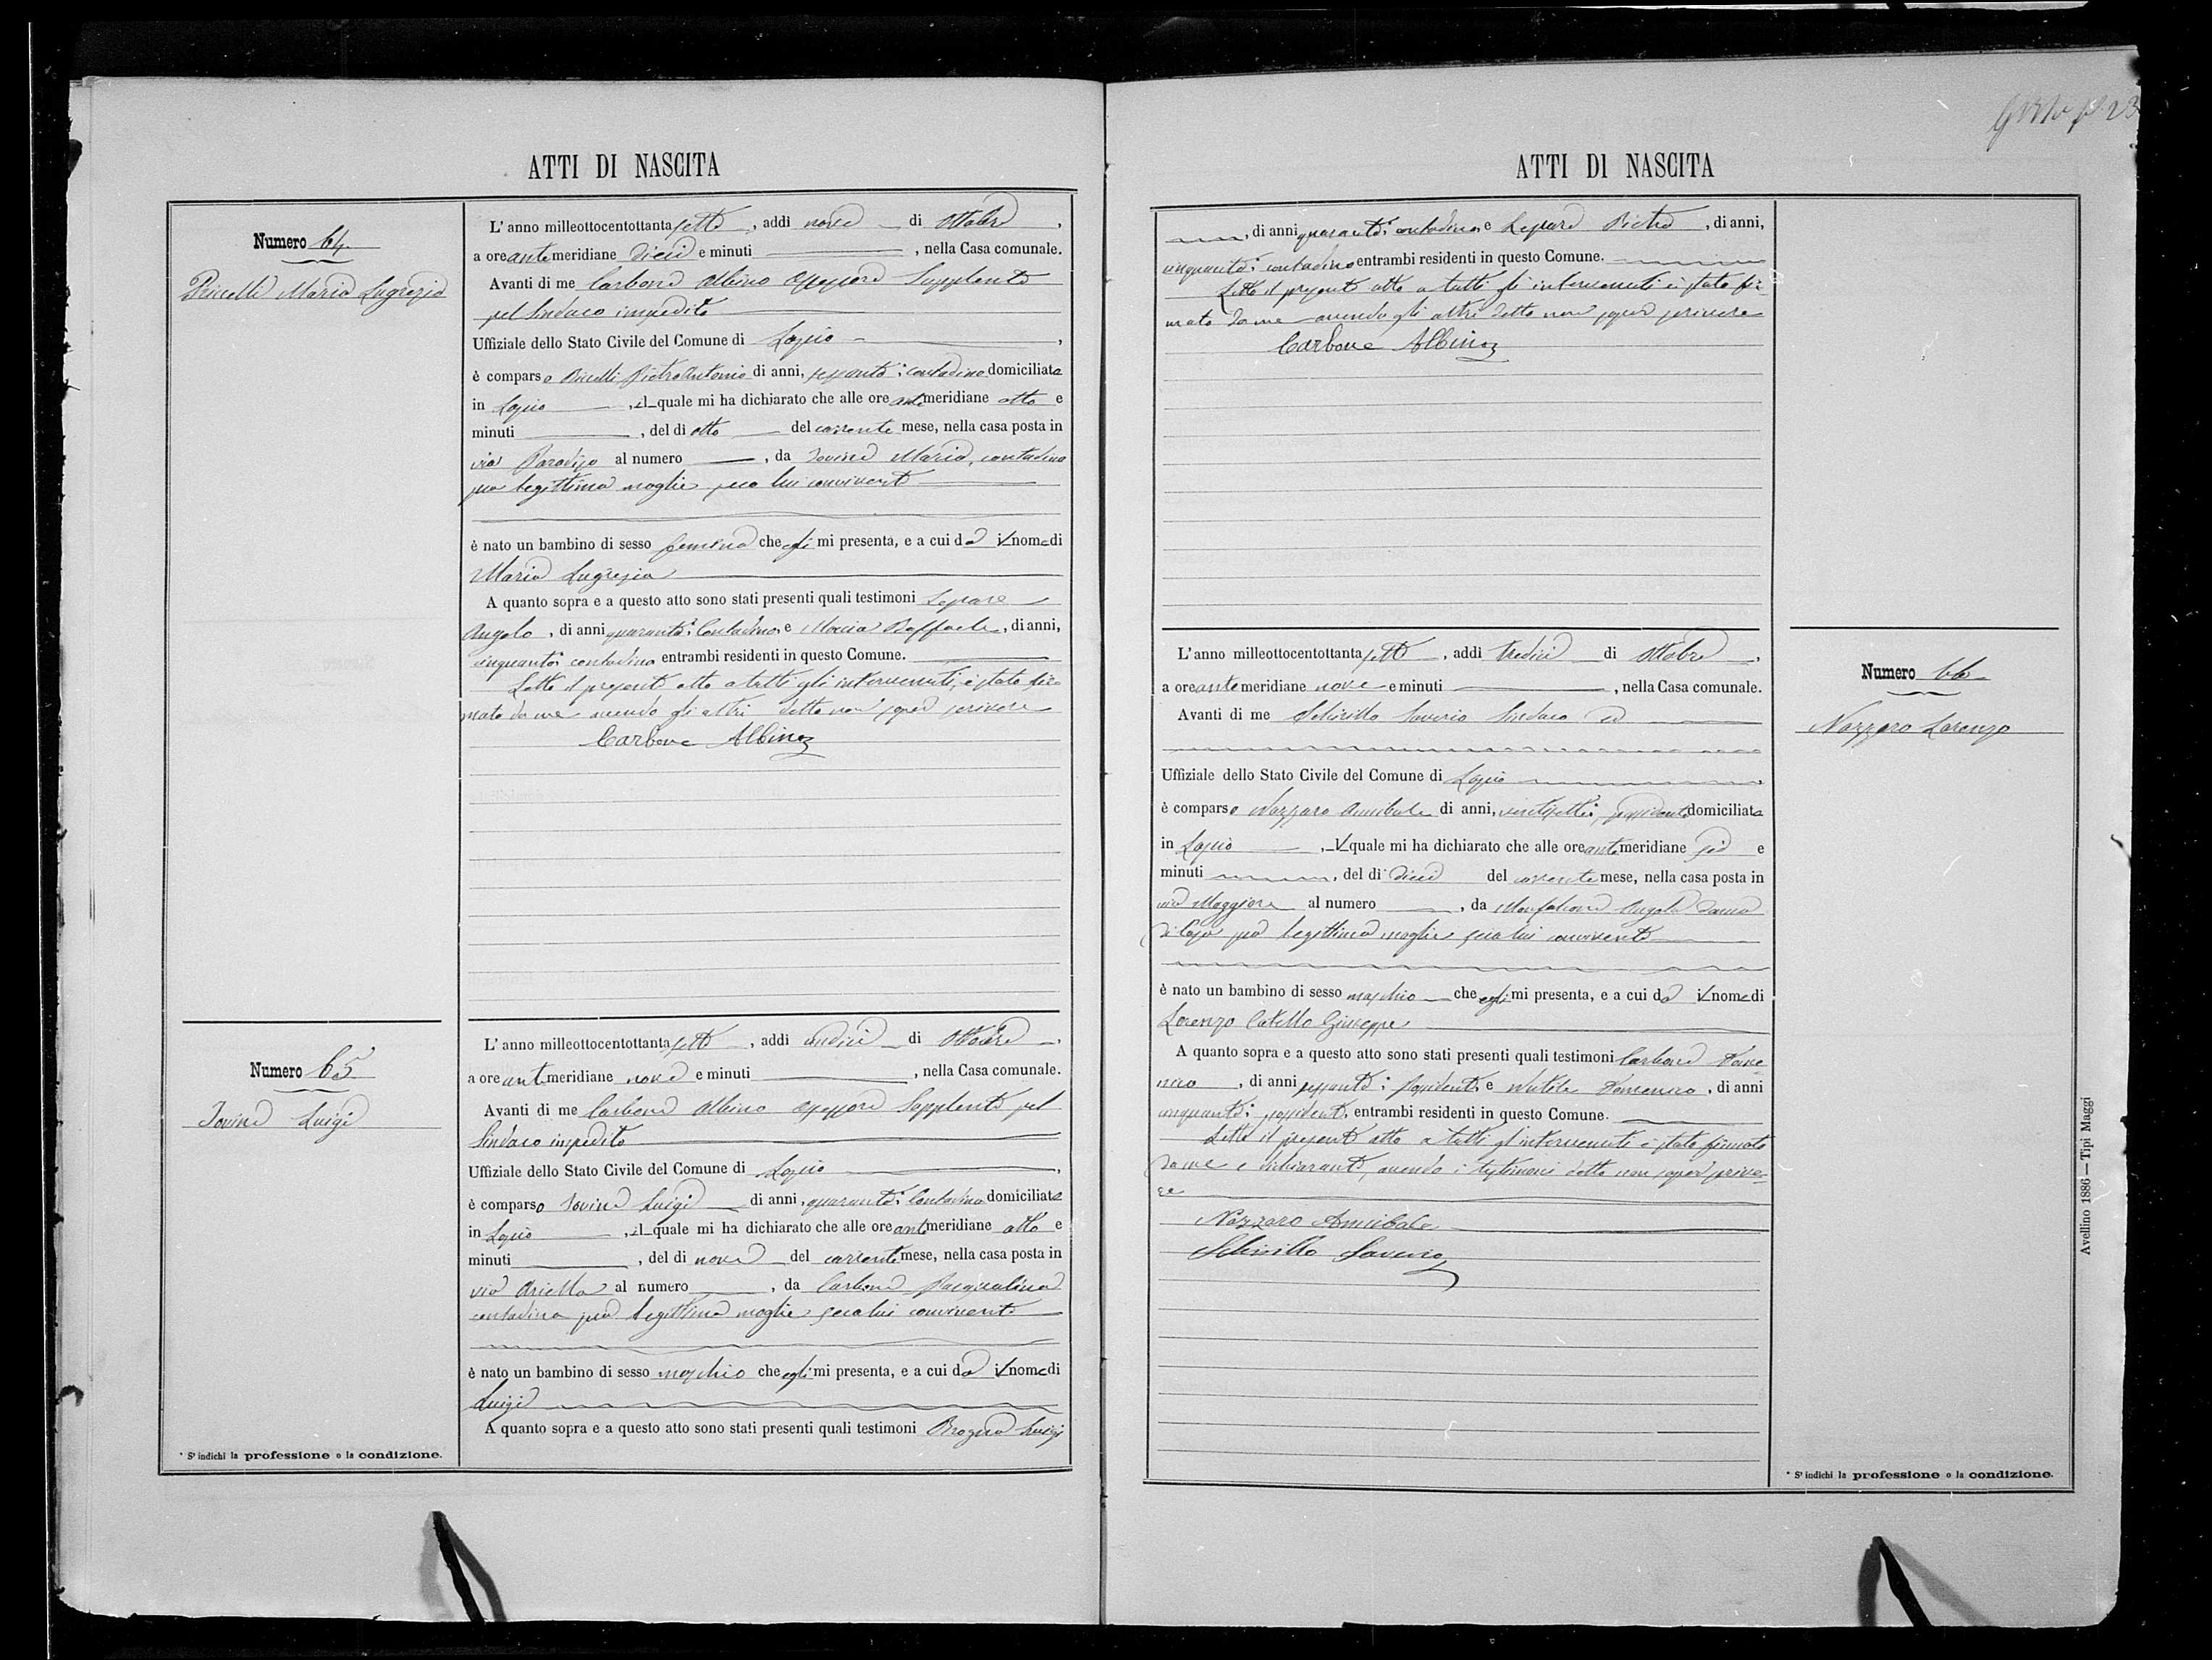 ATTI DI NASCITA
Numero 64
Pricelli Maria Lugrezia
L'anno milleottocentottanta sette, addì nove di Ottobre,
a ore antemeridiane dieci e minuti, nella Casa comunale.
Avanti di me Carbone Albino Assessore Supplente
pel Sindaco impedito
Uffiziale dello Stato Civile del Comune di Lapio,
è comparso Pricelli Pietrantonio di anni, sessanta; contadino domiciliato
in Lapio, il quale mi ha dichiarato che alle ore antemeridiane otto e
minuti, del dì otto del corrente mese, nella casa posta in
via Paradiso al numero, da Iovine Maria, contadina
sua legittima moglie, seco lui convivente
è nato un bambino di sesso femineo che egli mi presenta, e a cui dà il nome di
Maria Lugrezia
A quanto sopra e a questo atto sono stati presenti quali testimoni Lepore
Angelo, di anni quaranta; Contadino, e Moccia Raffaele, di anni,
cinquanta; contadino entrambi residenti in questo Comune.
Letto il presente atto a tutti gli intervenuti, è stato fir
mato da me avendo gli altri detto non saper scrivere
Carbone Albino
Numero 65
Iovine Luigi
L'anno milleottocentottanta sette, addì undici di Ottobre,
a ore antimeridiane nove e minuti, nella Casa comunale.
Avanti di me Carbone Albino Assessore Supplente pel
Sindaco impedito
Uffiziale dello Stato Civile del Comune di Lapio,
è comparso Iovine Luigi di anni, quaranta; Contadino domiciliato
in Lapio, il quale mi ha dichiarato che alle ore antimeridiane otto e
minuti, del di nove del corrente mese, nella casa posta in
via Ariella al numero, da Carbone Pasqualina
contadina sua legittima moglie seco lui convivente
è nato un bambino di sesso maschio che egli mi presenta, e a cui dà il nome di
Luigi
A quanto sopra e a questo atto sono stati presenti quali testimoni Brogna Luigi
* S'indichi la professione o la condizione.
ATTI DI NASCITA
, di anni quaranta; contadino, e Lepore Pietro, di anni,
cinquanta; contadino entrambi residenti in questo Comune.
Letto il presente atto a tutti gli intervenuti è stato fir-
mato da me avendo gli altri detto non saper scrivere
Carbone Albino
L'anno milleottocentottanta sette, addì tredici di Ottobre,
a ore antemeridiane nove e minuti, nella Casa comunale.
Avanti di me Schirillo Saverio Sindaco ed
Uffiziale dello Stato Civile del Comune di Lapio
è comparso Nazzaro Annibale di anni, ventisette; possidente domiciliato
in Lapio, il quale mi ha dichiarato che alle ore antemeridiane sei e
minuti, del di dieci del corrente mese, nella casa posta in
via Maggiore al numero, da Monfalcone Angela donna
di Casa sua legittima moglie seco lui convivente
è nato un bambino di sesso maschio che egli mi presenta, e a cui dà il nome di
Lorenzo Catello Giuseppe
A quanto sopra e a questo atto sono stati presenti quali testimoni Carbone Dome
nico, di anni sessanta; possidente e Domenico, di anni
cinquanta; possidente, entrambi residenti in questo Comune.
Letto il presente atto a tutti gl'intervenuti è stato firmato
da me e dichiarante, avendo i testimoni detto non saper scrive-
re
Nazzaro Annibale
Schirillo Saverio
Numero 66
Nazzaro Lorenzo
* S'indichi la professione o la condizione.
Avellino 1886 — Tipi Maggi